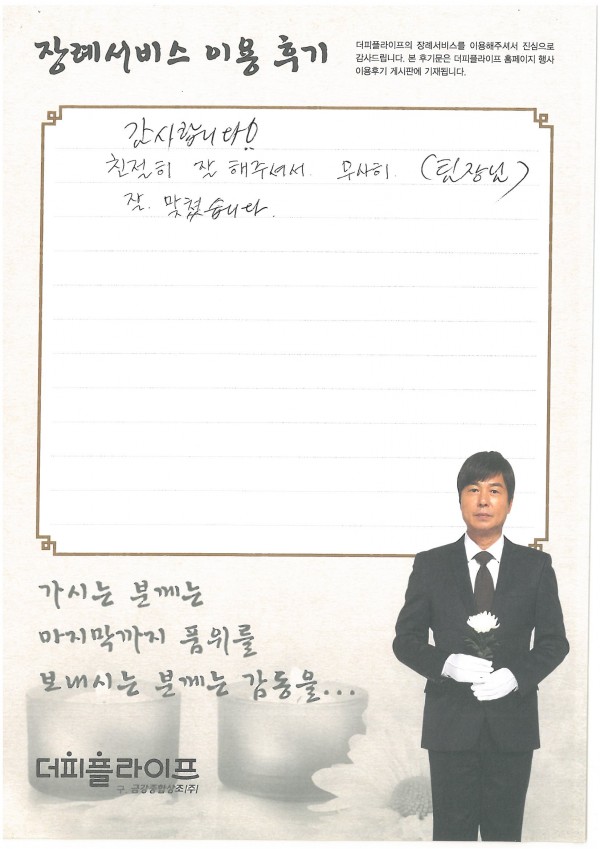 장례서비스 이용 후기
더피플라이프의 장례서비스를 이용해주셔서 진심으로
감사드립니다. 본 후기문은 더피플라이프 홈페이지 행사
이용후기 게시판에 기재됩니다.
감사합니다!
친절히 잘 해주셔서. 무사히. (팀장님)
잘. 맞쳤습니다.
가시는 분께는
마지막까지 품위를
보내시는 분께는 감동을...
더피플라이프
구. 금강종합상조(주)